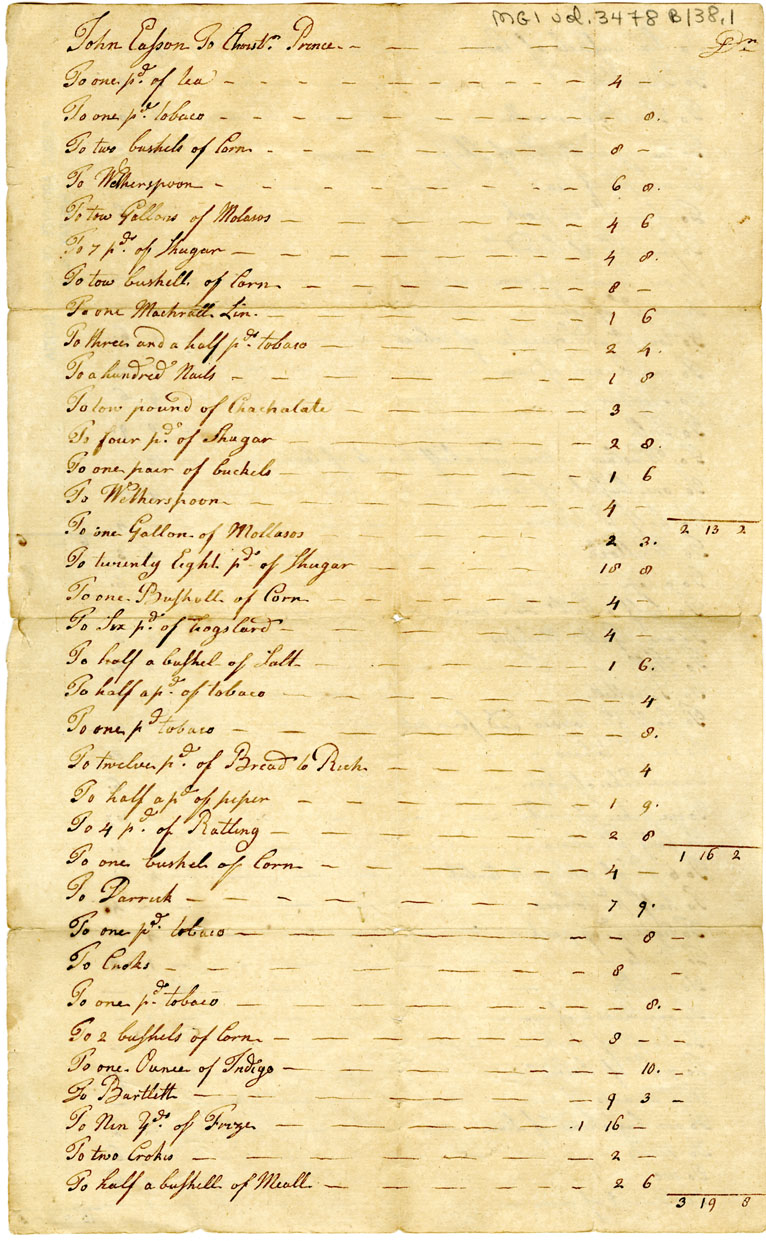 MG1 vol. 3478 B/38.1
John Easson To Christr. Prince — — — — — — — Dr
To one pd of tea — — — — — — — 4 —
To one pd. tobaco — — — — — — — 8.
To two bushels of Corn — — — — — — 8 —
To Wetherspoon — — — — — — — 6 8.
To tow Gallons of Molasos — — — — — — 4 6
To 7 pd. of Shugar — — — — — — — 4 8.
To tow bushell of Corn — — — — — — 8 —
To one Machrall Lin. — — — — — — 1 6
To three and a half pds tobaco — — — — — 2 4.
To a hundred Nails — — — — — — — 1 8
To tow pound of Chachalate — — — — — — 3 —
To four pd. of Shugar — — — — — — 2 8.
To one pair of buckels — — — — — — 1 6
To Wetherspoon — — — — — — — 4 —
2 13 2
To one Gallon of Mollasos — — — — — — 2 3.
To twenty Eight pds of Shugar — — — — — 18 8
To one Bushell of Corn — — — — — — 4 —
To Six pd. of hogslard — — — — — — 4 —
To half a bushel of Salt — — — — — — 1 6.
To half a pd. of tobaco — — — — — — 4
To one pd tobaco — — — — — — — 8.
To twelve pd. of Bread to Rich — — — — — 4
To half a pd of peper — — — — — — 1 9.
To 4 pd. of Ratling — — — — — — 2 8
1 16 2
To one bushel of Corn — — — — — — 4 —
To Darrick — — — — — — — 7 9.
To one pd. tobaco — — — — — — — 8 —
To Croks — — — — — — — 8 —
To one pd. tobaco — — — — — — — 8.
To 2 bushels of Corn — — — — — — 8 —
To one Ounce of Indigo — — — — — — 10. —
To Bartlett — — — — — — — 9 3 —
To Nin Yds. of Frize — — — — — 1 16 —
To two Croks — — — — — — — 2 —
To half a bushell of Meall — — — — — — 2 6
3 19 8